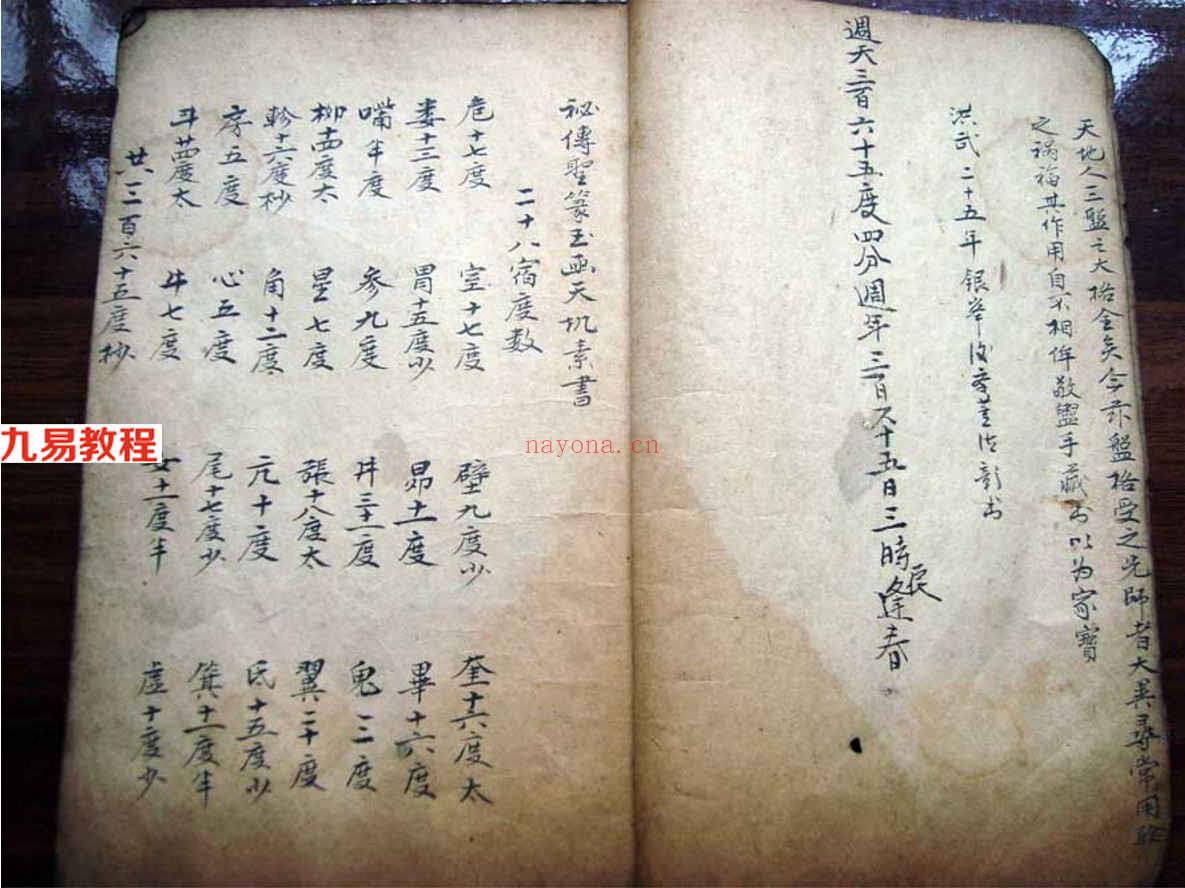 天地人三盤之大格全矣今亦盤格受之先師者大異尋常用
之禍福其作用自不相侔敬盥手藏书以为家寶
洪武二十五年銀峯
週天三百六十五度四分週年三百六十五日三時民逢春
秘傳聖篆玉函天机素書
二十八宿度数
危十七度 室十七度 壁九度少 奎十六度太
娄十二度 胃十五度少 昴十一度 畢十六度
嘴半度 參九度 井三十一度 鬼二度
柳十四度太 星七度 張十八度太 翼二十度
軫十六度杪 角十二度 亢十度 氐十五度少
房五度 心五度 尾十七度少 箕十一度半
斗廿四度太 牛七度 女十一度半 虛十度少
共三百六十五度杪
九易教程
nayona.cn